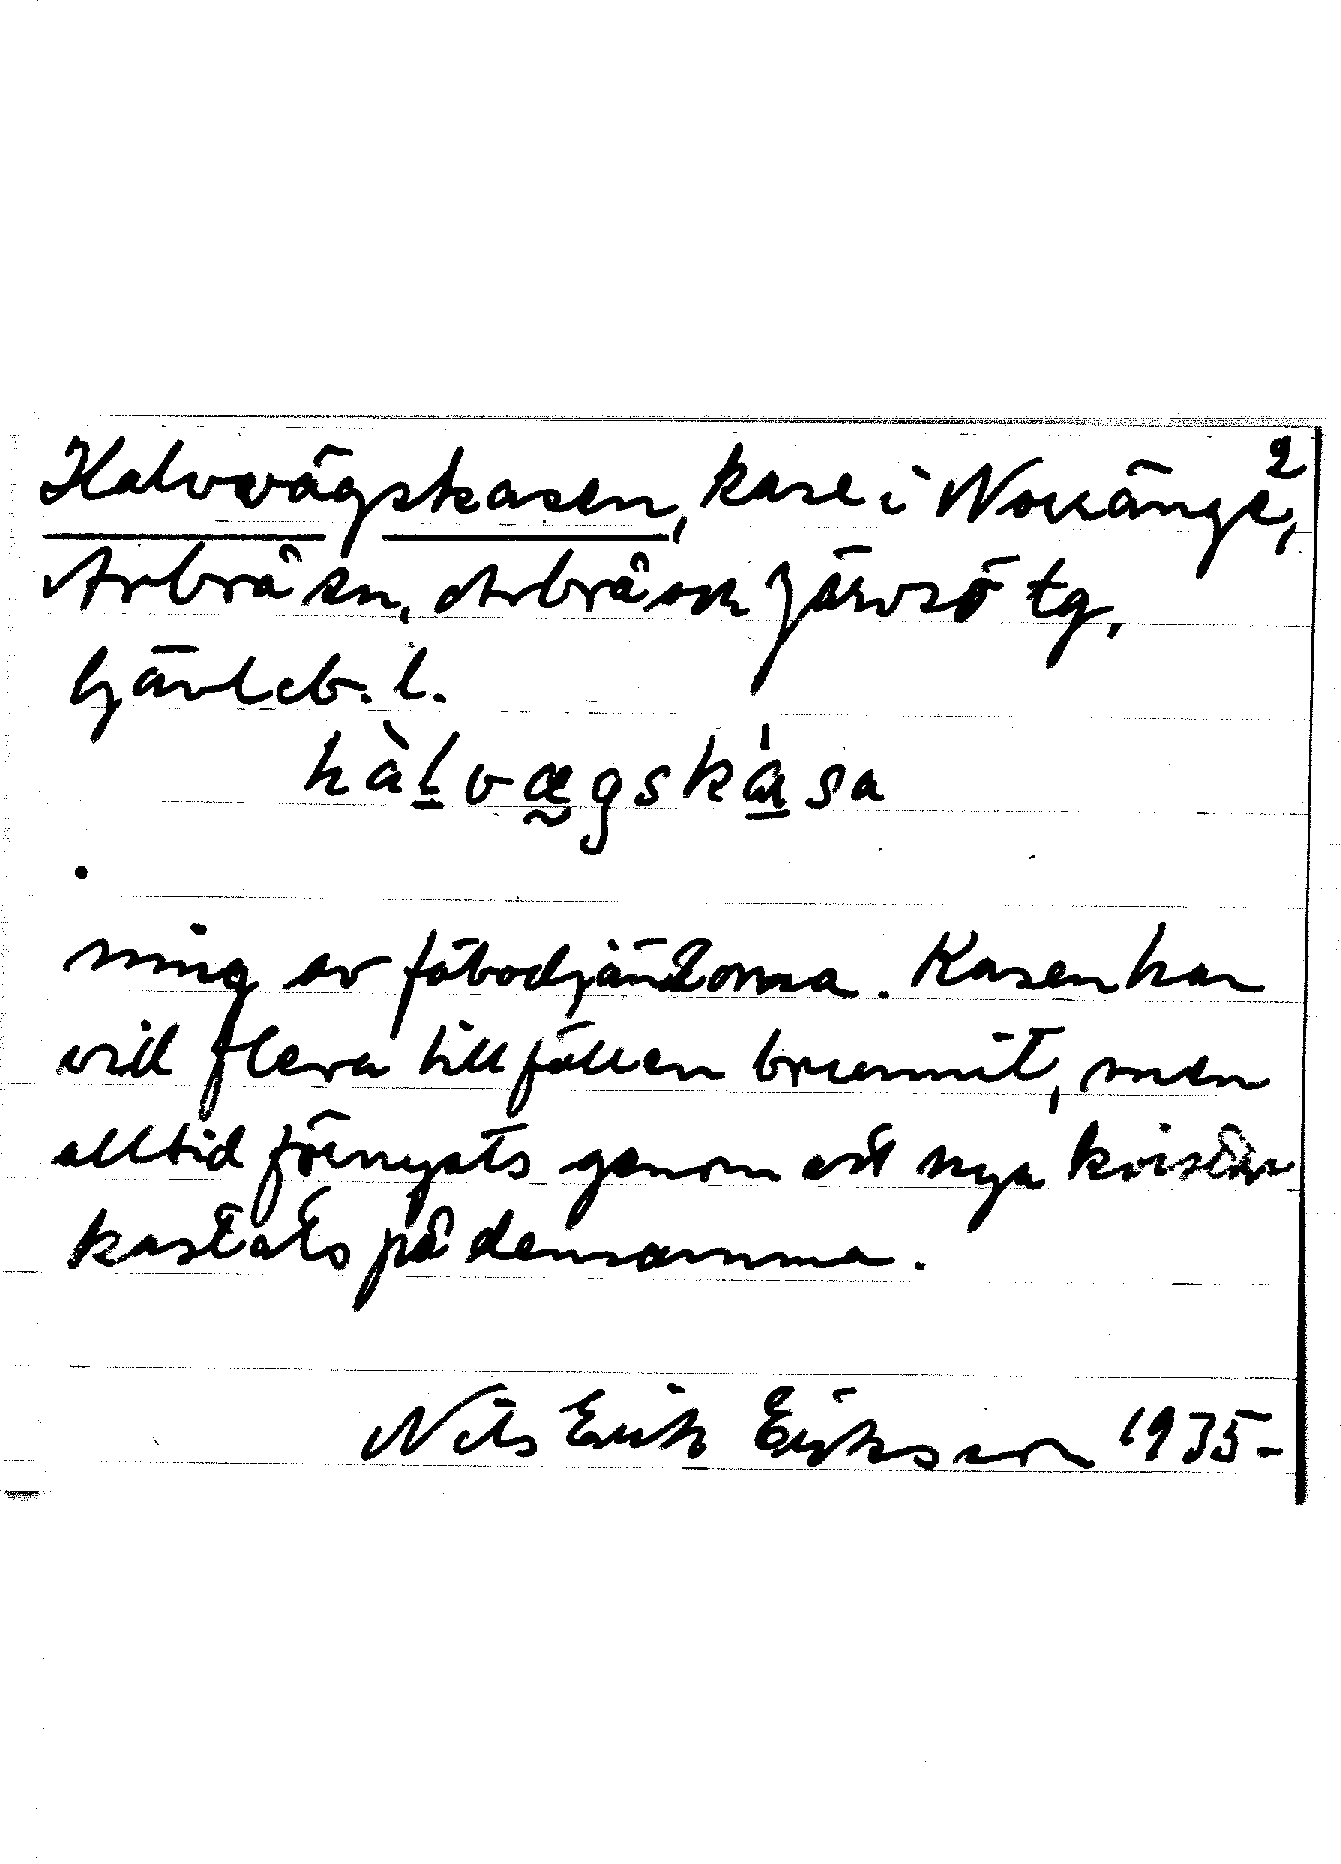 2
Halvvägskasen, kase i Norränge,
Arbrå sn, Arbrå och Järvsö tg,
Gävleb. l.
hàḷvægskása
ning av fäbodjäntorna. Kasen har
vid flera tillfällen brunnit, men
alltid förnyats genom att nya kvistar
kastats på densamma.
Nils Erik Eriksson 1935-